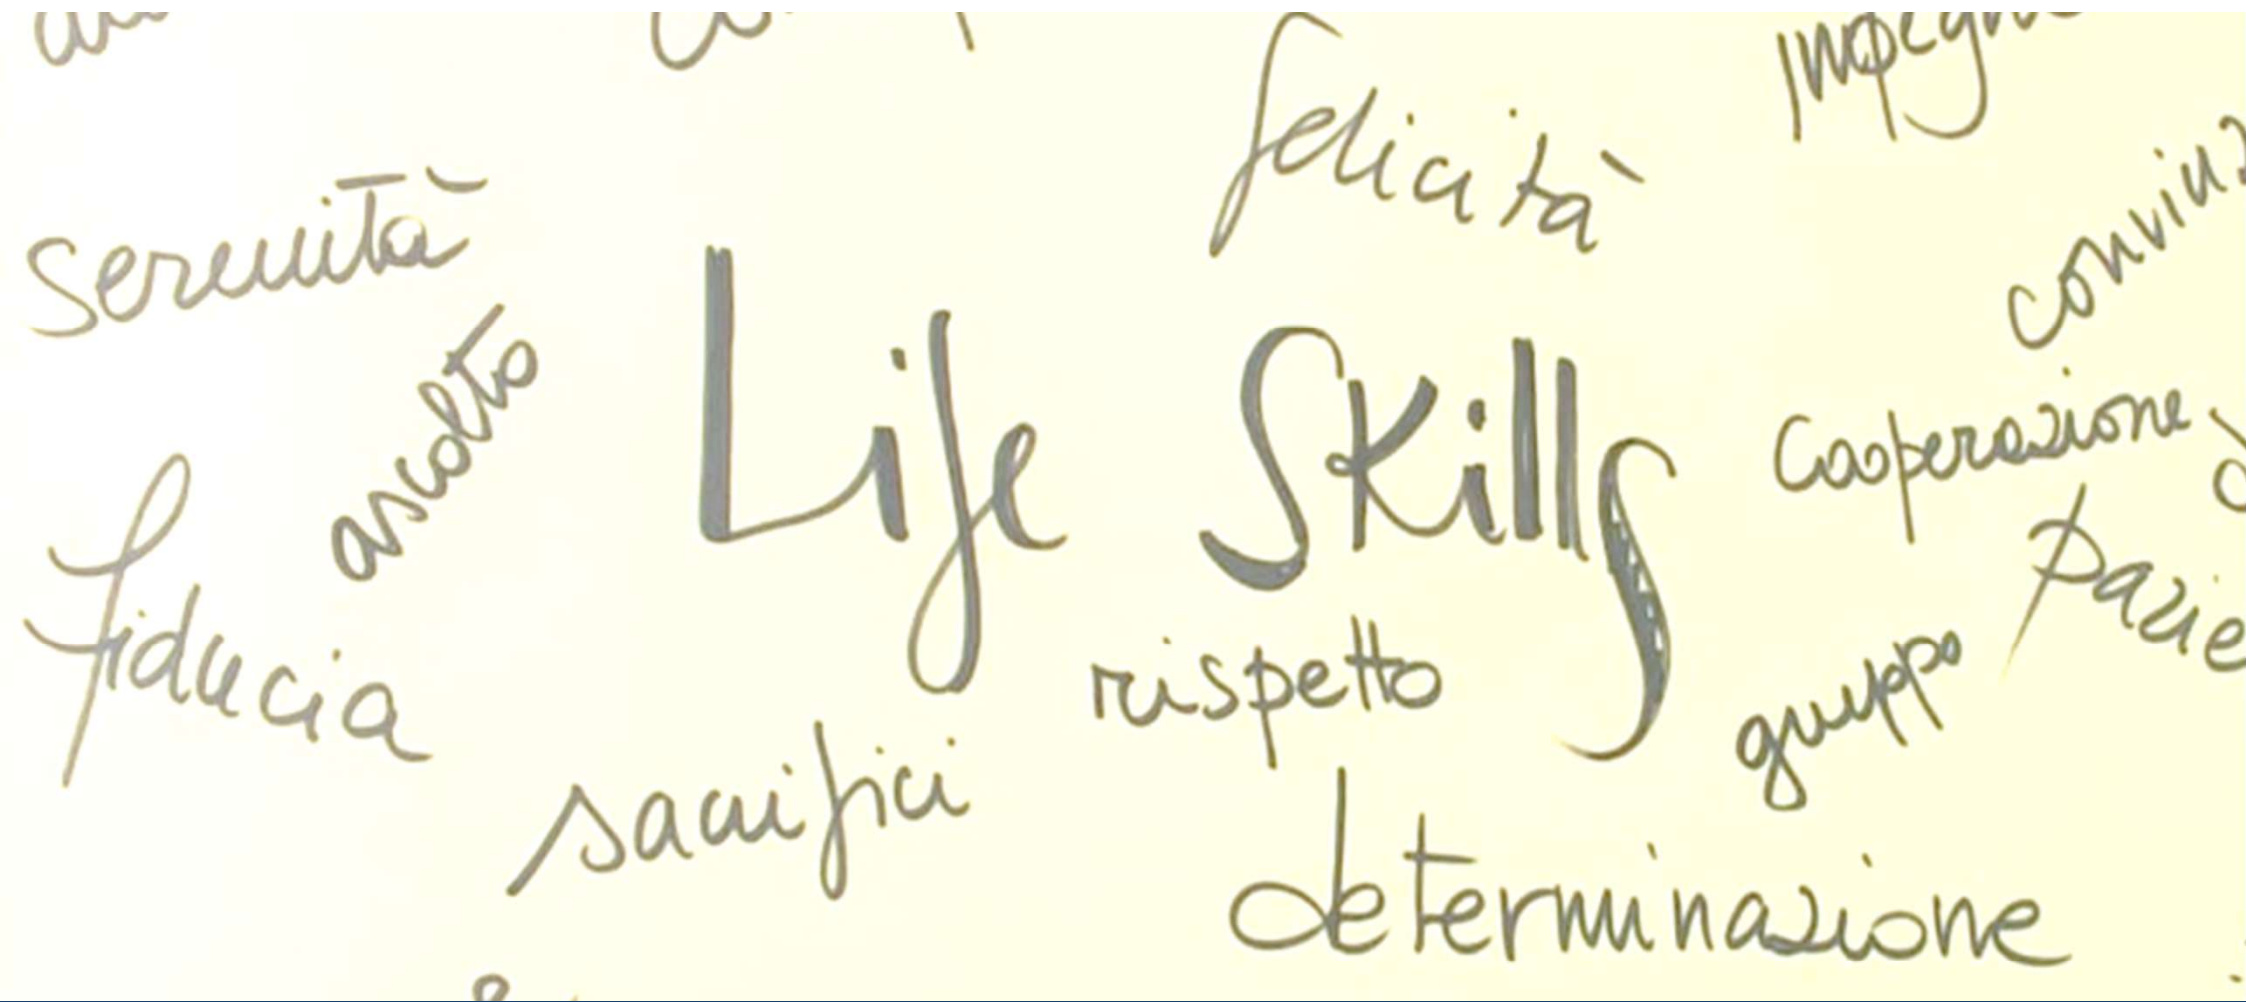 felicità
serenità
ascolto
Life Skills
Cooperazione
fiducia
rispetto
gruppo
sacrifici
determinazione